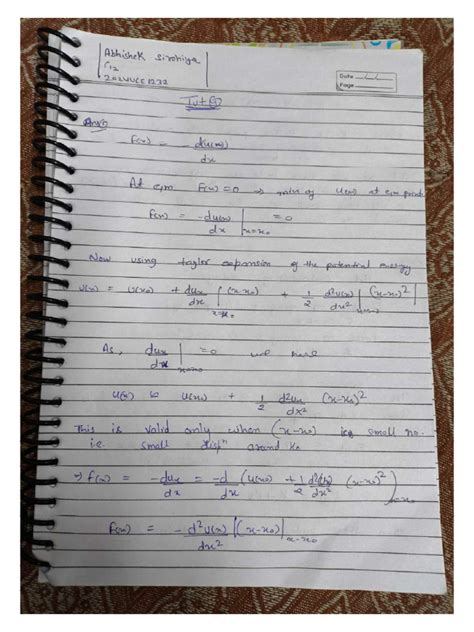 Abhishek Sirohiya
C12
Date __/__/__
Page
Tut
Ans
F(x) = -du(x)/dx
At eqm F(x) = 0 => min of U(x) at eqm point
F(x) = -du(x)/dx |x=x0 = 0
Now using taylor expansion of the potential energy
U(x) = U(x0) + dux/dx |x=x0 (x-x0) + 1/2 d²u(x)/dx² | (x-x0)²
As, dux/dx |x=x0 = 0 we have
U(x) U(x0) + 1/2 d²ux/dx² (x-x0)²
This is valid only when (x-x0) is small no.
i.e. small dispⁿ around x0
=> f(x) = -dux/dx = -d/dx (U(x0) + 1/2 d²u/dx² (x-x0)²) x=x0
F(x) = -d²u(x)/dx² | (x-x0) | x=x0